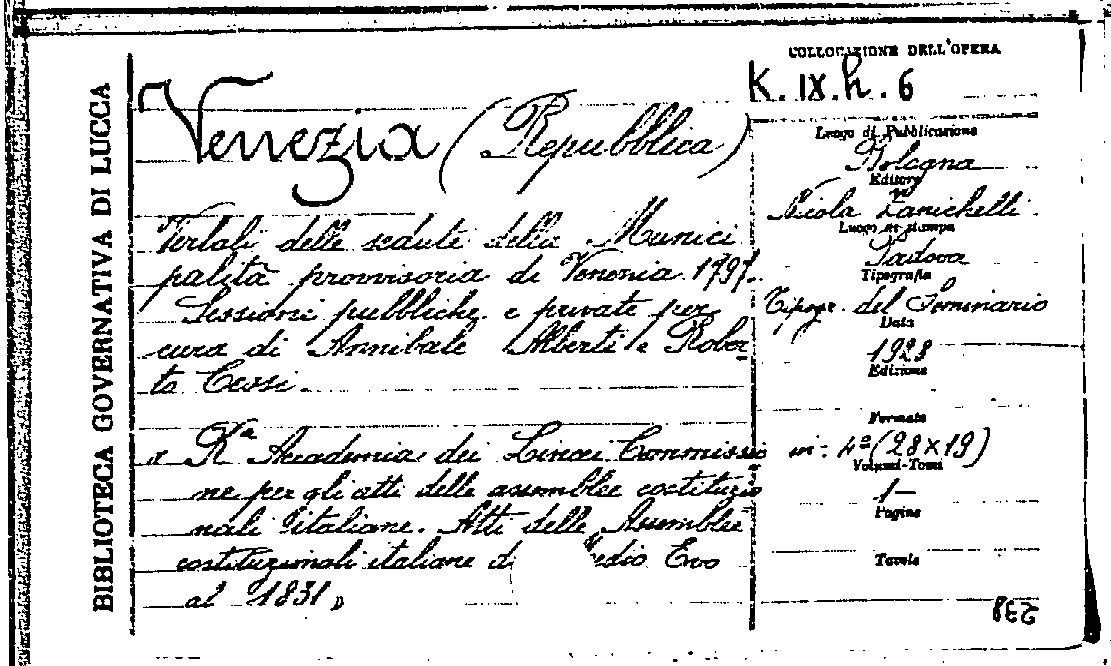 BIBLIOTECA GOVERNATIVA DI LUCCA
Venezia (Repubblica)
Verbali delle sedute della Munici
palità provvisoria di Venezia 1797.
Sessioni pubbliche e private per
cura di Annibale Alberti e Rober
to Cessi.
Rª Accademia dei Lincei Commissio
ne per gli atti delle assemblee costituzio
nali italiane. Atti delle Assemblee
costituzionali italiane d edio Evo
al 1831
COLLOCAZIONE DELL'OPERA
K. IX. h. 6
Luogo di Pubblicazione
Bologna
Editore
Nicola Zanichelli.
Luogo di stampa
Padova
Tipografia
Tipogr. del Seminario
Data
1928
Edizione
Formato
in: 4º (28×19)
Volumi-Tomi
1—
Pagine
Tavole
238